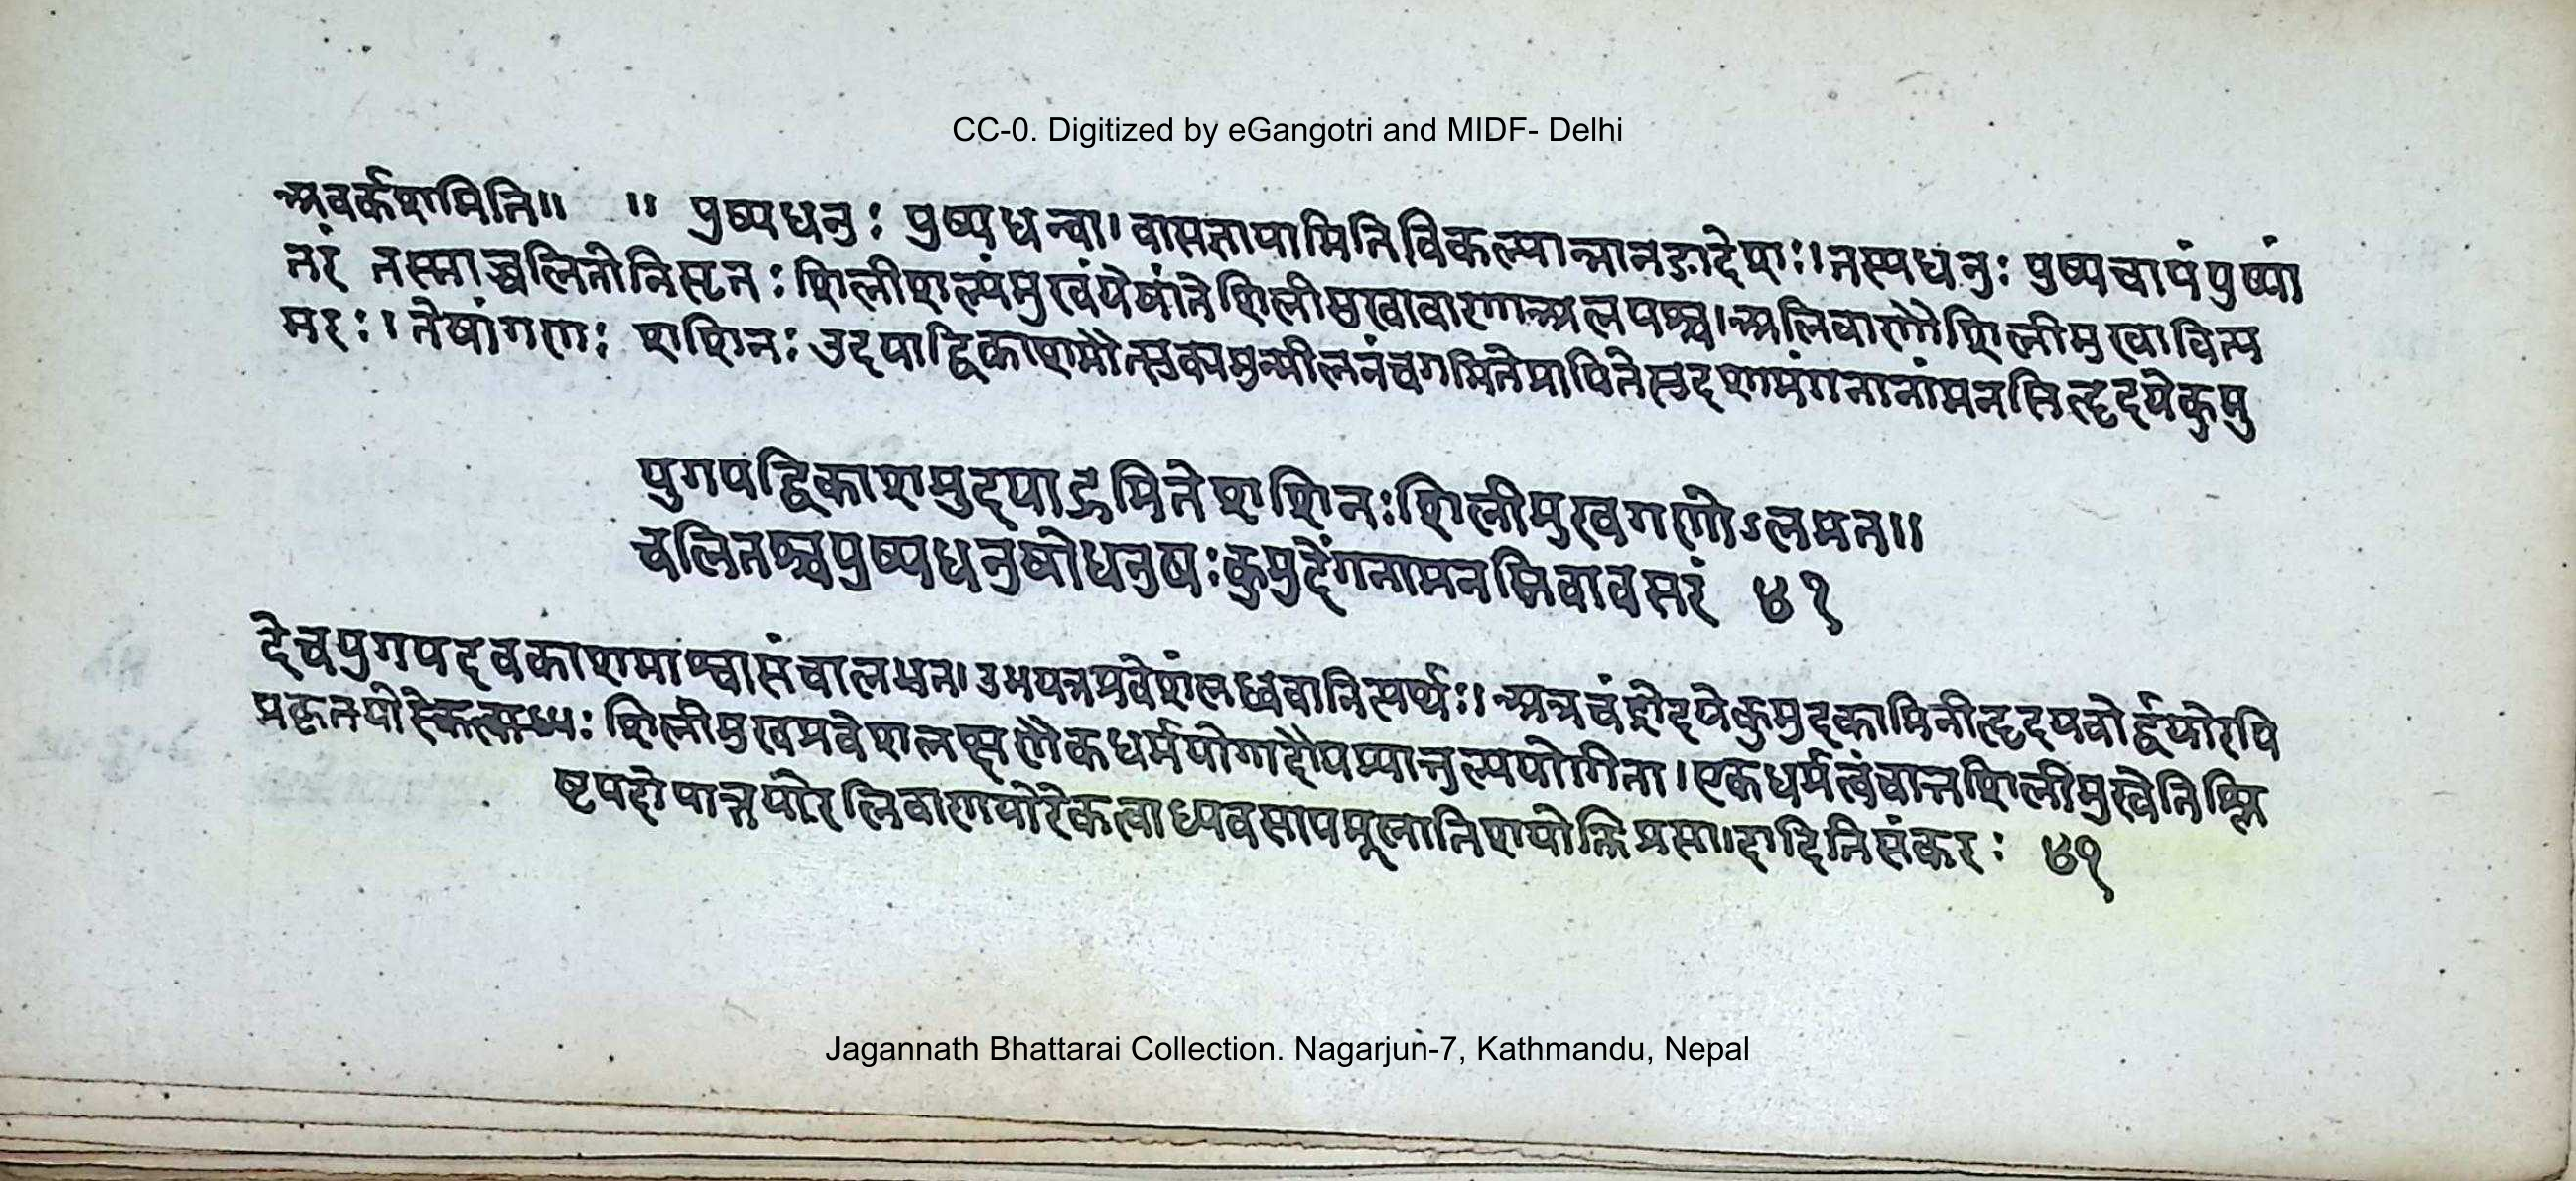 CC-0. Digitized by eGangotri and MIDF- Delhi
अवर्कशमिति॥ ॥ पुष्पधनुः पुष्पधन्वा। वासंज्ञायामितिविकल्पान्नानङादेशः। तस्यधनुः पुष्पचापंपुष्पां
तरं तस्माच्चलितोनिसृतः शिलीशल्यंमुखंयेषांतेशिलीमुखावाणाअलयश्च। अलिवाणौशिलीमुखावित्य
मरः। तेषांगणः शशिनः उदयाद्विकाशमौत्सुक्यमुन्मीलनंचगमितेप्रापितेसुदृशामंगनानांमनसिहृदयेकुमु
युगपद्विकाशमुदयाद्गमिते शशिनः शिलीमुखगणोऽलभत॥
चलितश्चपुष्पधनुषोधनुषः कुमुदेंगनामनसिवावसरं ४१
देचयुगपदवकाशमाश्वासंचालभत। उभयत्रप्रवेशंलब्धवानित्यर्थः। अत्रचंद्रोदयेकुमुदकामिनीहृदययोर्द्वयोरपि
प्रकृतयोः शिलीमुखप्रवेशलक्षणैकधर्मयोगादौपम्यात्तुल्ययोगिता। एकधर्मत्वंचात्रशिलीमुखेतिश्लि
ष्टपदोपात्तयोरलिवाणयोरेकत्वाध्यवसायमूलातिशयोक्तिप्रसादादितिसंकरः ४१
Jagannath Bhattarai Collection. Nagarjun-7, Kathmandu, Nepal